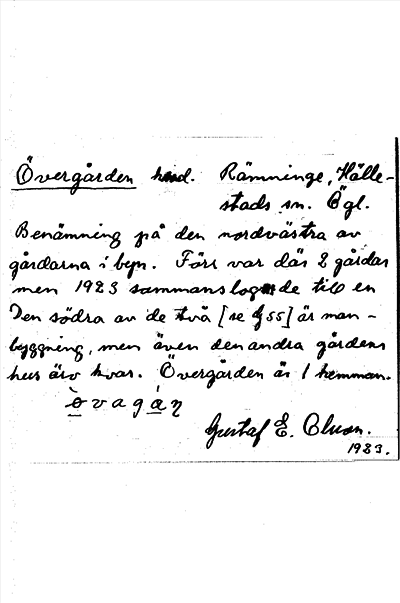 Övergården hmd. Rämninge, Hälle-
stads sn. Ögl.
Benämning på den nordvästra av
gårdarna i byn. Förr var där 2 gårdar
men 1923 sammanslogos de till en
Den södra av de två [se 55] är man-
byggning, men även den andra gårdens
hus äro kvar. Övergården är 1 hemman.
òvagáṇ
Gustaf E.
1923.